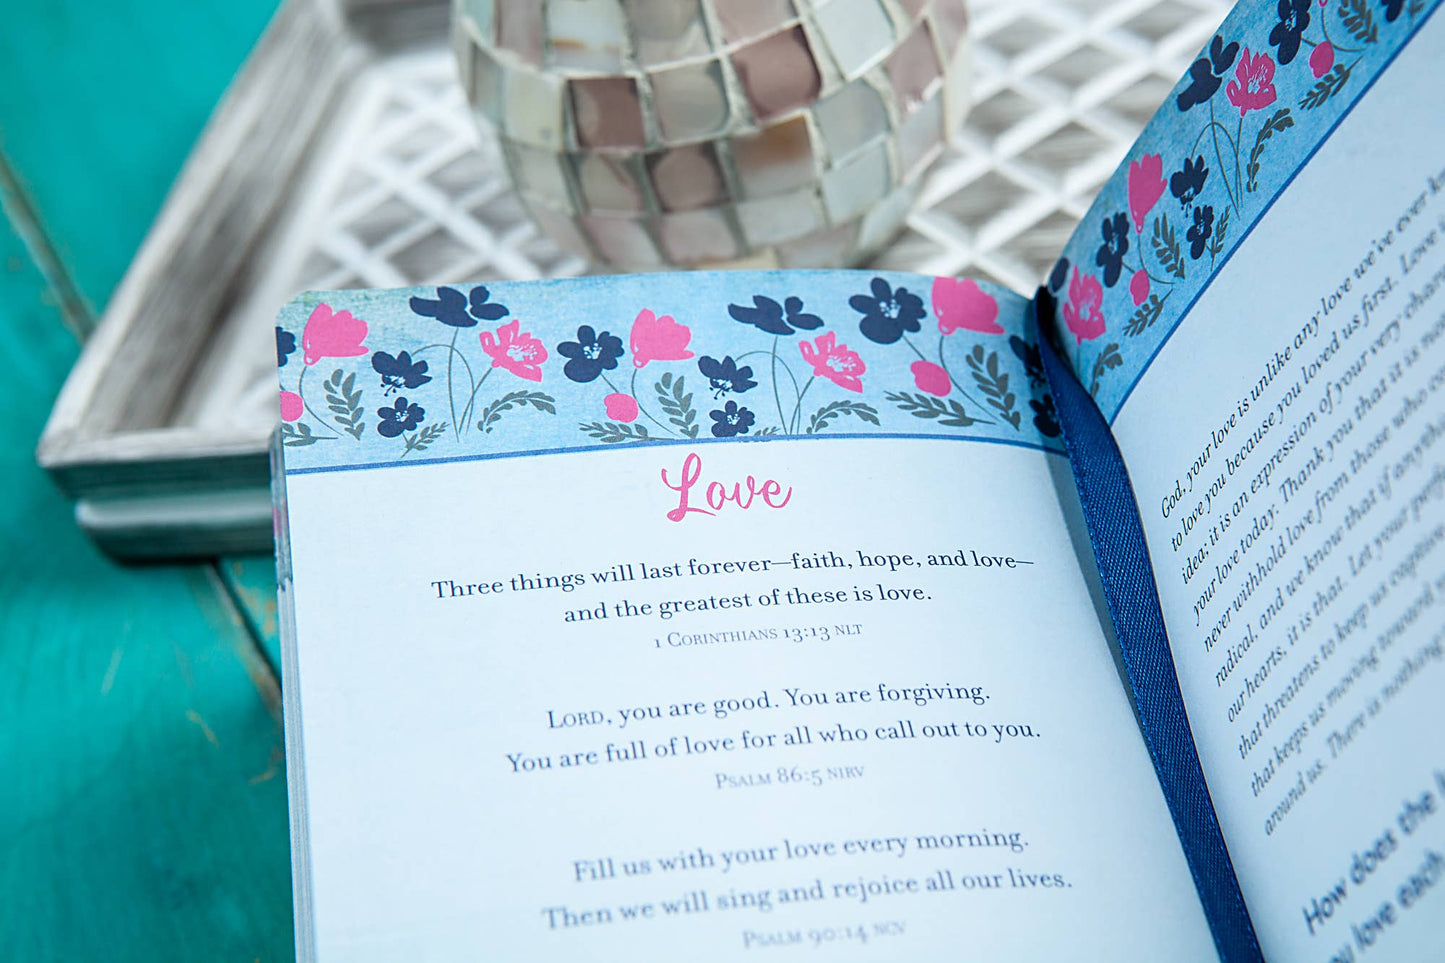 Love
Three things will last forever—faith, hope, and love—
and the greatest of these is love.
1 Corinthians 13:13 NLT
Lord, you are good. You are forgiving.
You are full of love for all who call out to you.
Psalm 86:5 NIRV
Fill us with your love every morning.
Then we will sing and rejoice all our lives.
Psalm 90:14 NCV
God, your love is unlike any love we've ever
to love you because you loved us first. Love
idea; it is an expression of your very
your love today. Thank you that it is
never withhold love from those who
radical, and we know that if
our hearts, it is that. Let your
that threatens to keep us
that keeps us moving toward
around us. There is nothing
How does the
love each